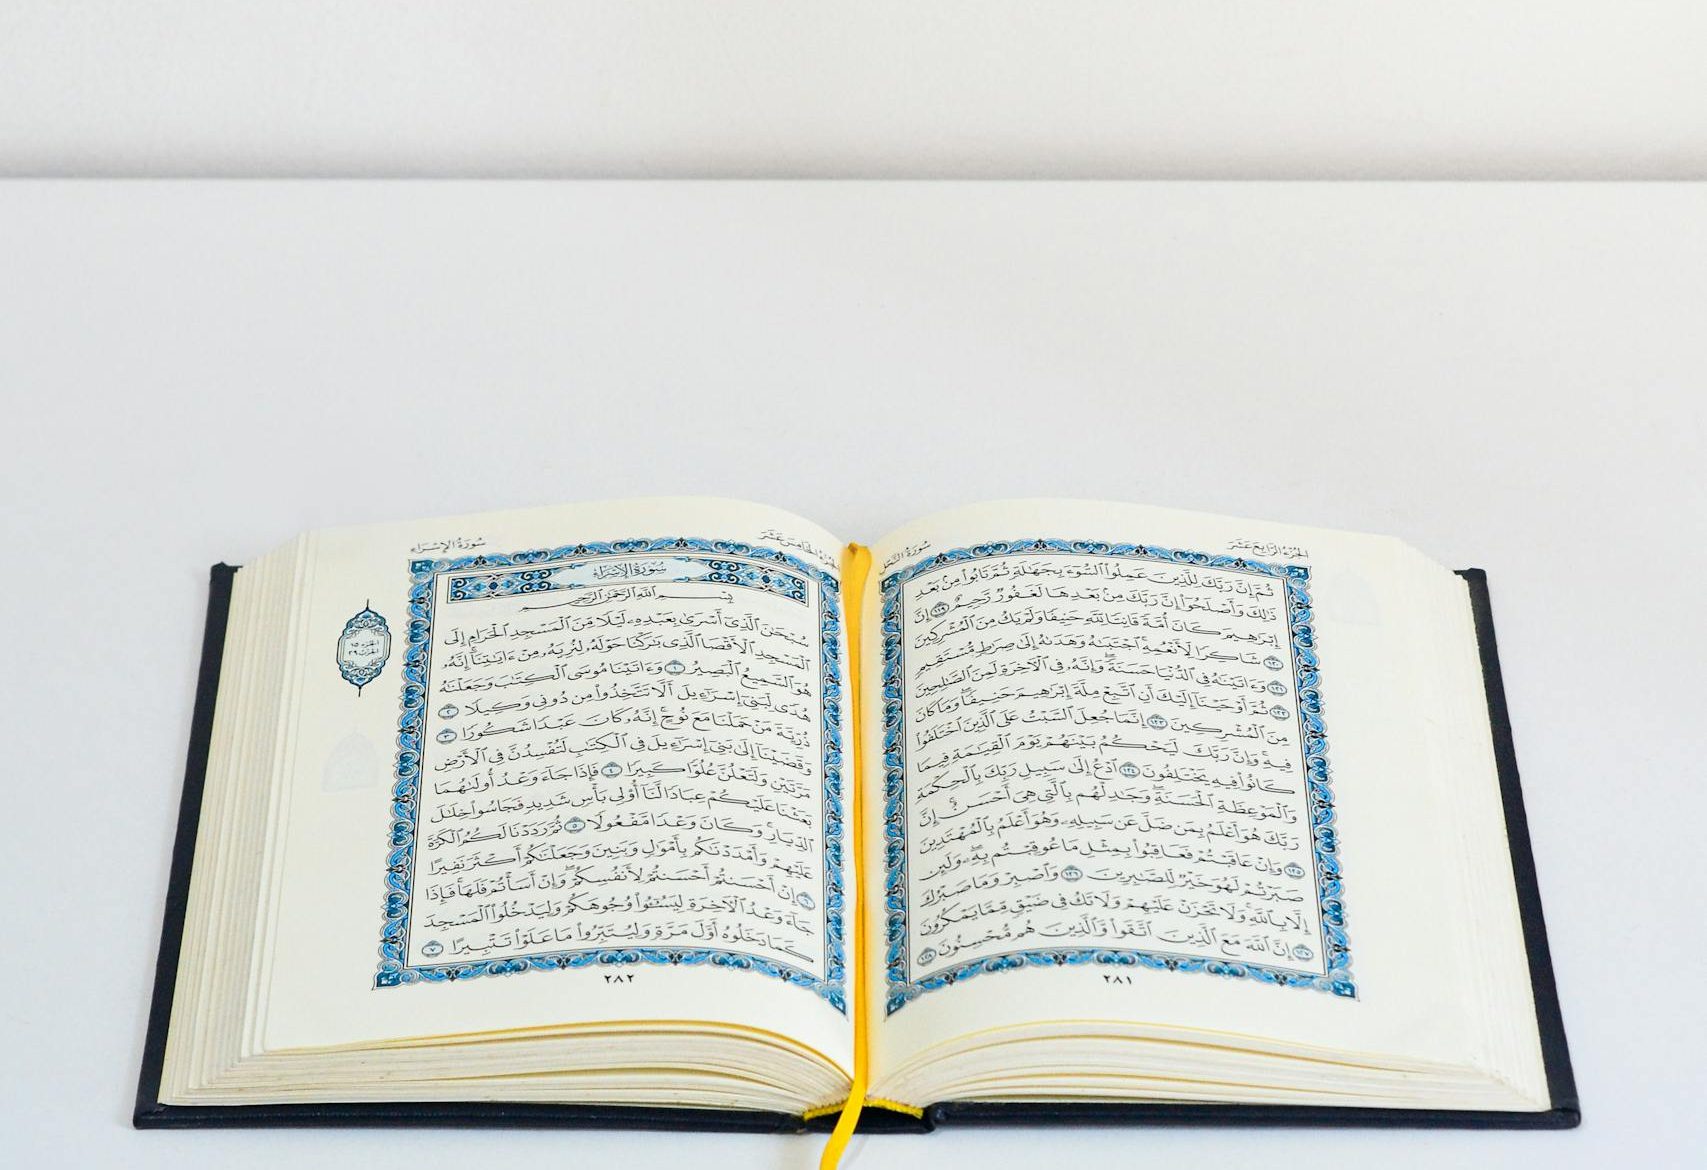 الجزء الرابع عشر
سورة النحل
ثُمَّ إِنَّ رَبَّكَ لِلَّذِينَ عَمِلُوا۟ ٱلسُّوٓءَ بِجَهَٰلَةٍ ثُمَّ تَابُوا۟ مِنۢ بَعْدِ
ذَٰلِكَ وَأَصْلَحُوٓا۟ إِنَّ رَبَّكَ مِنۢ بَعْدِهَا لَغَفُورٌ رَّحِيمٌ ١١٩ إِنَّ
إِبْرَٰهِيمَ كَانَ أُمَّةً قَانِتًا لِّلَّهِ حَنِيفًا وَلَمْ يَكُ مِنَ ٱلْمُشْرِكِينَ
١٢٠ شَاكِرًا لِّأَنْعُمِهِ ۚ ٱجْتَبَىٰهُ وَهَدَىٰهُ إِلَىٰ صِرَٰطٍ مُّسْتَقِيمٍ
١٢١ وَءَاتَيْنَٰهُ فِى ٱلدُّنْيَا حَسَنَةً ۖ وَإِنَّهُۥ فِى ٱلْءَاخِرَةِ لَمِنَ ٱلصَّٰلِحِينَ
١٢٢ ثُمَّ أَوْحَيْنَآ إِلَيْكَ أَنِ ٱتَّبِعْ مِلَّةَ إِبْرَٰهِيمَ حَنِيفًا ۖ وَمَا كَانَ
مِنَ ٱلْمُشْرِكِينَ ١٢٣ إِنَّمَا جُعِلَ ٱلسَّبْتُ عَلَى ٱلَّذِينَ ٱخْتَلَفُوا۟
فِيهِ ۚ وَإِنَّ رَبَّكَ لَيَحْكُمُ بَيْنَهُمْ يَوْمَ ٱلْقِيَٰمَةِ فِيمَا
كَانُوا۟ فِيهِ يَخْتَلِفُونَ ١٢٤ ٱدْعُ إِلَىٰ سَبِيلِ رَبِّكَ بِٱلْحِكْمَةِ
وَٱلْمَوْعِظَةِ ٱلْحَسَنَةِ ۖ وَجَٰدِلْهُم بِٱلَّتِى هِىَ أَحْسَنُ ۚ إِنَّ
رَبَّكَ هُوَ أَعْلَمُ بِمَن ضَلَّ عَن سَبِيلِهِۦ ۖ وَهُوَ أَعْلَمُ بِٱلْمُهْتَدِينَ
١٢٥ وَإِنْ عَاقَبْتُمْ فَعَاقِبُوا۟ بِمِثْلِ مَا عُوقِبْتُم بِهِۦ ۖ وَلَئِن
صَبَرْتُمْ لَهُوَ خَيْرٌ لِّلصَّٰبِرِينَ ١٢٦ وَٱصْبِرْ وَمَا صَبْرُكَ
إِلَّا بِٱللَّهِ ۚ وَلَا تَحْزَنْ عَلَيْهِمْ وَلَا تَكُ فِى ضَيْقٍ مِّمَّا يَمْكُرُونَ
١٢٧ إِنَّ ٱللَّهَ مَعَ ٱلَّذِينَ ٱتَّقَوا۟ وَّٱلَّذِينَ هُم مُّحْسِنُونَ ١٢٨
٢٨١
الجزء الخامس عشر
سورة الإسراء
سورة الإسراء
بِسْمِ ٱللَّهِ ٱلرَّحْمَٰنِ ٱلرَّحِيمِ
سُبْحَٰنَ ٱلَّذِىٓ أَسْرَىٰ بِعَبْدِهِۦ لَيْلًا مِّنَ ٱلْمَسْجِدِ ٱلْحَرَامِ إِلَى
ٱلْمَسْجِدِ ٱلْأَقْصَا ٱلَّذِى بَٰرَكْنَا حَوْلَهُۥ لِنُرِيَهُۥ مِنْ ءَايَٰتِنَآ ۚ إِنَّهُۥ
هُوَ ٱلسَّمِيعُ ٱلْبَصِيرُ ١ وَءَاتَيْنَا مُوسَى ٱلْكِتَٰبَ وَجَعَلْنَٰهُ
هُدًى لِّبَنِىٓ إِسْرَٰٓءِيلَ أَلَّا تَتَّخِذُوا۟ مِن دُونِى وَكِيلًا ٢
ذُرِّيَّةَ مَنْ حَمَلْنَا مَعَ نُوحٍ ۚ إِنَّهُۥ كَانَ عَبْدًا شَكُورًا ٣
وَقَضَيْنَآ إِلَىٰ بَنِىٓ إِسْرَٰٓءِيلَ فِى ٱلْكِتَٰبِ لَتُفْسِدُنَّ فِى ٱلْأَرْضِ
مَرَّتَيْنِ وَلَتَعْلُنَّ عُلُوًّا كَبِيرًا ٤ فَإِذَا جَآءَ وَعْدُ أُولَىٰهُمَا
بَعَثْنَا عَلَيْكُمْ عِبَادًا لَّنَآ أُو۟لِى بَأْسٍ شَدِيدٍ فَجَاسُوا۟ خِلَٰلَ
ٱلدِّيَارِ ۚ وَكَانَ وَعْدًا مَّفْعُولًا ٥ ثُمَّ رَدَدْنَا لَكُمُ ٱلْكَرَّةَ
عَلَيْهِمْ وَأَمْدَدْنَٰكُم بِأَمْوَٰلٍ وَبَنِينَ وَجَعَلْنَٰكُمْ أَكْثَرَ نَفِيرًا
٦ إِنْ أَحْسَنتُمْ أَحْسَنتُمْ لِأَنفُسِكُمْ ۖ وَإِنْ أَسَأْتُمْ فَلَهَا ۚ فَإِذَا
جَآءَ وَعْدُ ٱلْءَاخِرَةِ لِيَسُۥٓـُٔوا۟ وُجُوهَكُمْ وَلِيَدْخُلُوا۟ ٱلْمَسْجِدَ
كَمَا دَخَلُوهُ أَوَّلَ مَرَّةٍ وَلِيُتَبِّرُوا۟ مَا عَلَوْا۟ تَتْبِيرًا ٧
٢٨٢
الجزء ١٥
الحزب ٢٩